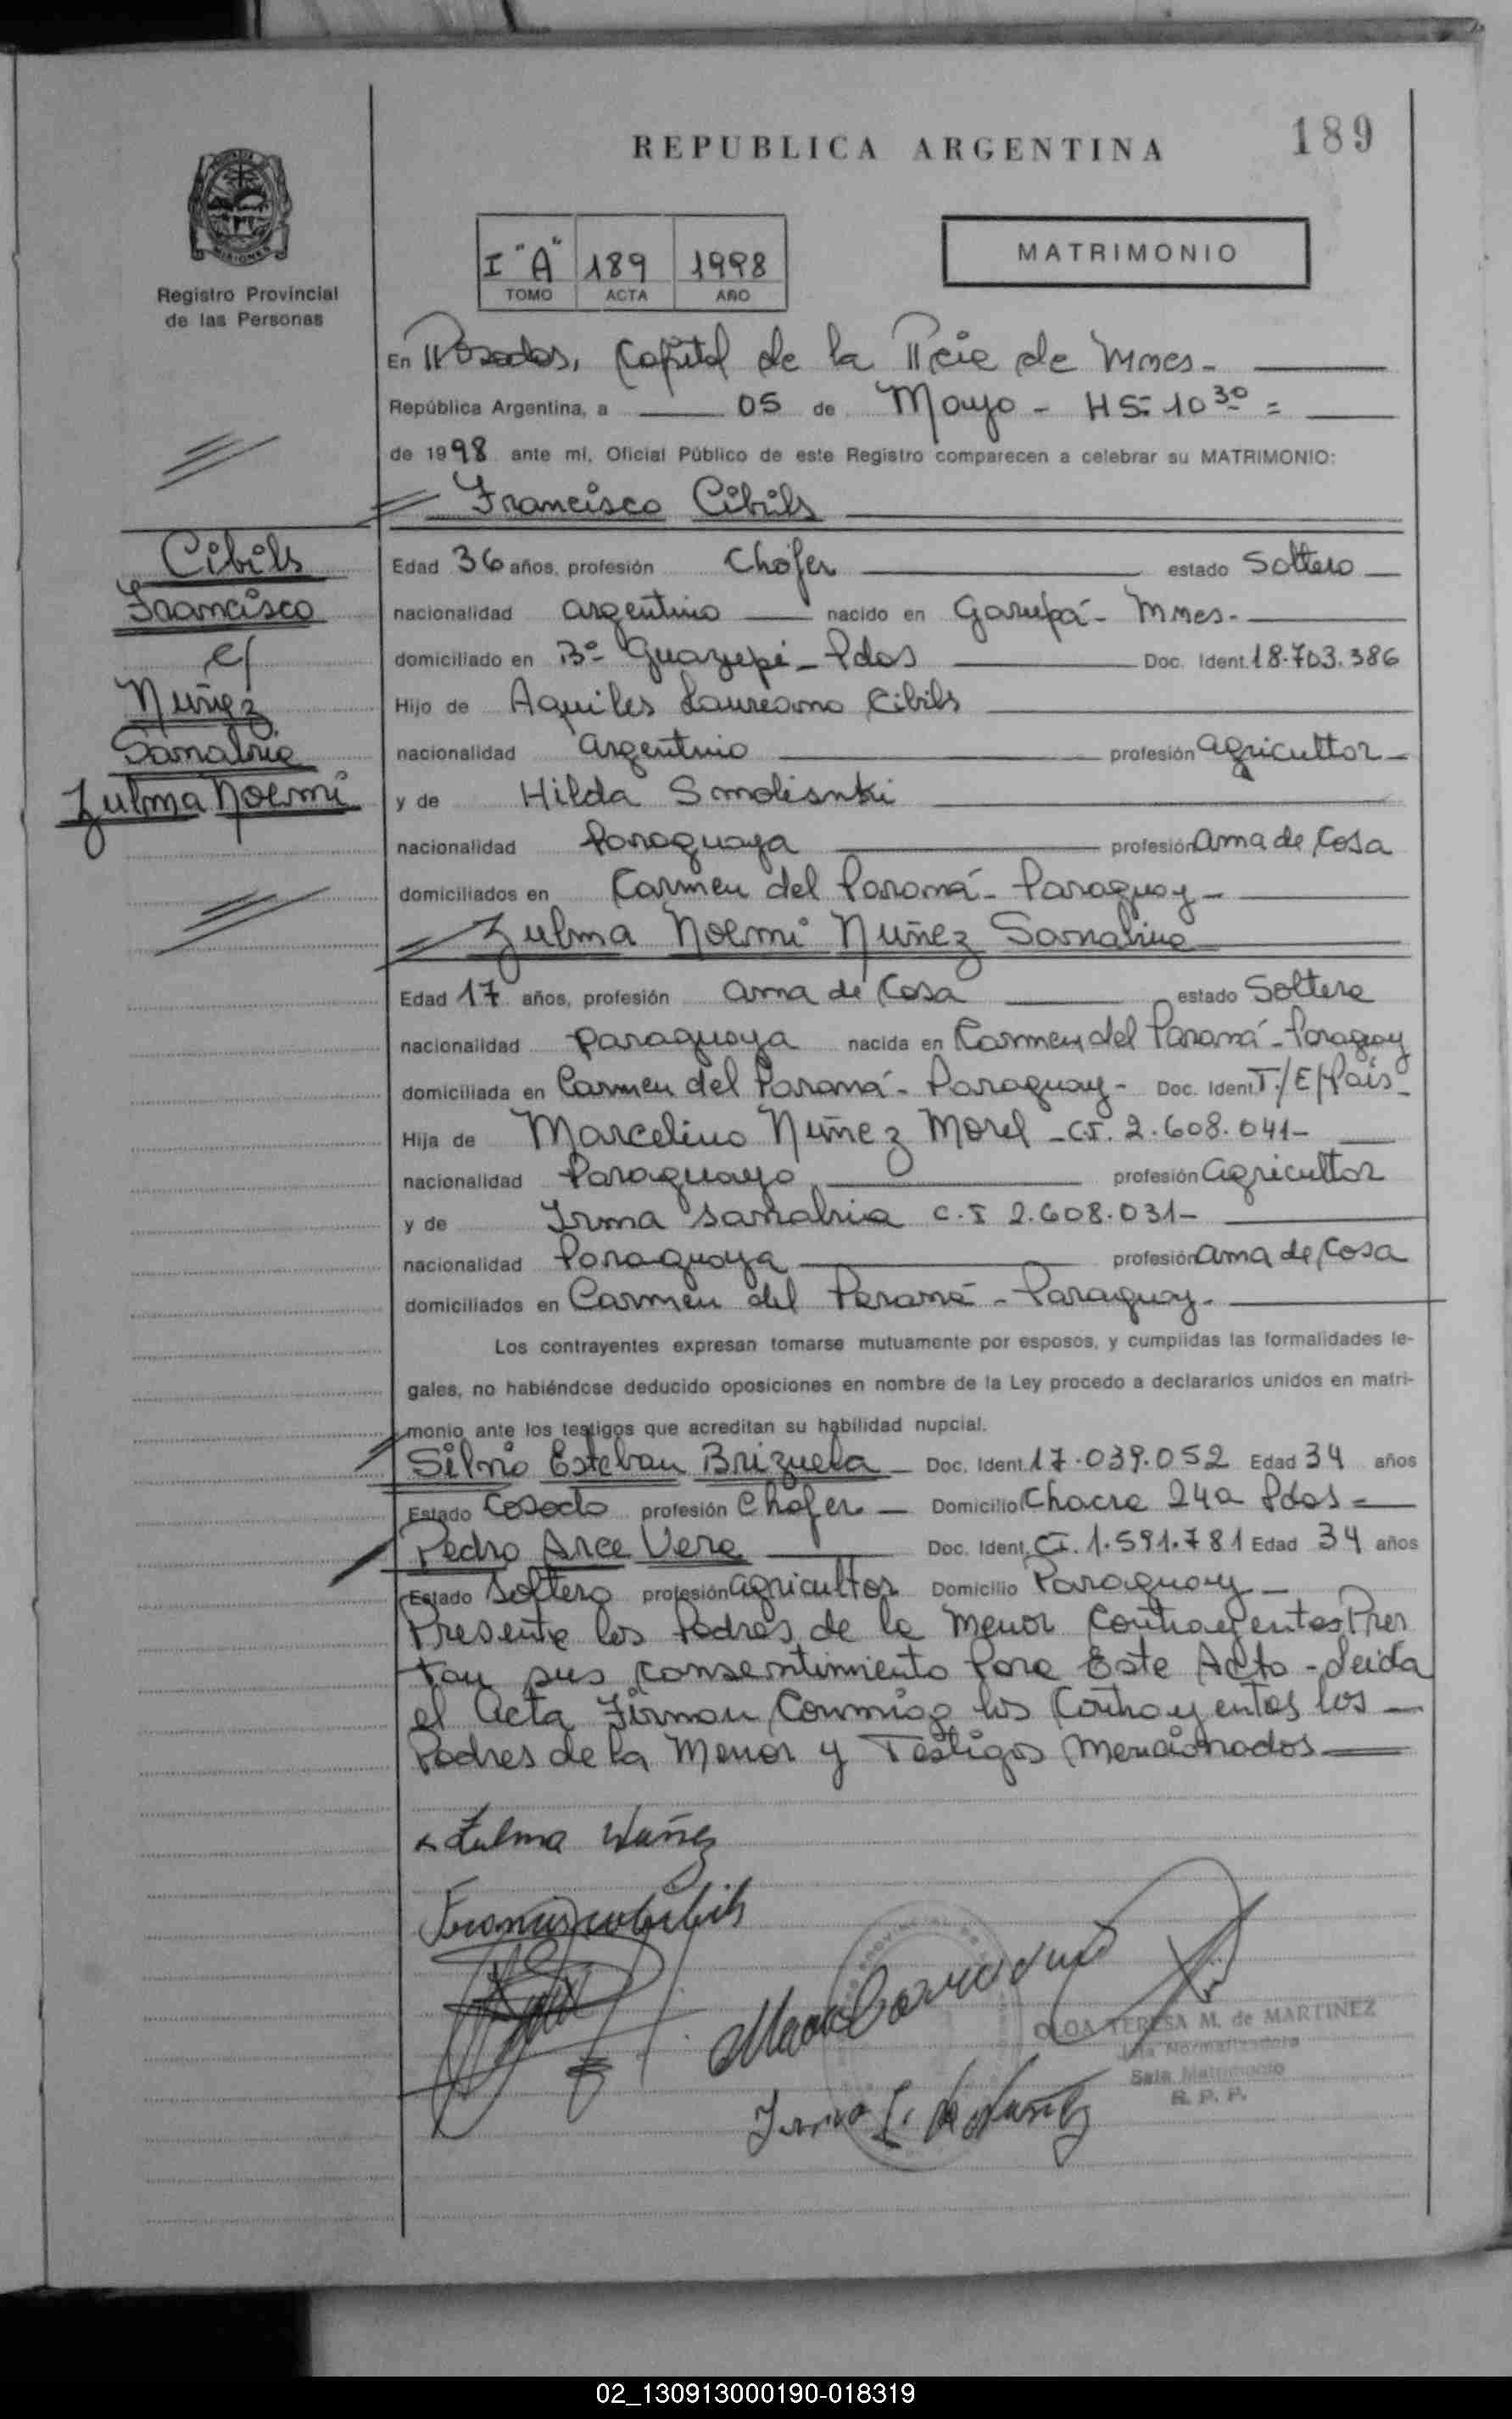 189
REPUBLICA ARGENTINA
MATRIMONIO
I "A" 189 1998
TOMO ACTA AÑO
Registro Provincial
de las Personas
En Posadas, Capital de la Pcia de Mnes-
República Argentina, a 05 de Mayo - HS: 10 30 =
de 1998 ante mí, Oficial Público de este Registro comparecen a celebrar su MATRIMONIO:
Francisco Cibils
Cibils
Francisco
c/
Nuñez
Sanabria
Zulma Noemi
Edad 36 años, profesión Chofer estado Soltero
nacionalidad argentino nacido en Garupá - Mnes.
domiciliado en Bº Guazupi - Pdas Doc. Ident. 18.703.386
Hijo de Aquiles Laureano Cibils
nacionalidad argentino profesión agricultor
y de Hilda Smolisnki
nacionalidad Paraguaya profesión ama de Casa
domiciliados en Carmen del Paraná - Paraguay -
Zulma Noemi Nuñez Sanabria
Edad 17 años, profesión ama de Casa estado Soltera
nacionalidad paraguaya nacida en Carmen del Paraná - Paraguay
domiciliada en Carmen del Paraná - Paraguay - Doc. Ident. T./E/País -
Hija de Marcelino Nuñez Morel - C.I. 2.608.041-
nacionalidad Paraguayo profesión agricultor
y de Irma Sanabria C.I 2.608.031-
nacionalidad Paraguaya profesión ama de Casa
domiciliados en Carmen del Paraná - Paraguay.
Los contrayentes expresan tomarse mutuamente por esposos, y cumplidas las formalidades le-
gales, no habiéndose deducido oposiciones en nombre de la Ley procedo a declararlos unidos en matri-
monio ante los testigos que acreditan su habilidad nupcial.
Silvio Esteban Brizuela - Doc. Ident. 17.039.052 Edad 34 años
Estado Casado profesión Chofer - Domicilio Chacra 240 Pdas -
Pedro Arce Vera Doc. Ident. CI. 1.591.781 Edad 34 años
Estado Soltero profesión agricultor Domicilio Paraguay -
Presente los Padres de la Menor Contrayentes Pres
tan sus consentimiento para Este Acto - Leida
el Acta Firman Conmigo los Contrayentes los -
Padres de la Menor y Testigos Mencionados
Zulma Nuñez
Francisco Cibils
OLGA TERESA M. de MARTINEZ
Jefa Normalizadora
Sala Matrimonio
R. P. P.
Irma S. de Nuñez
02_130913000190-018319